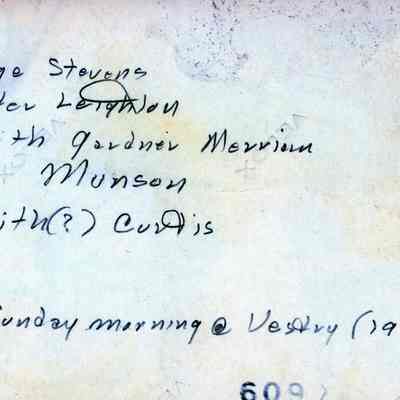 ge Stevens
ter Leighton
ith Gardner Merriam
Munson
ith(?) Curtis
Sunday morning @ Vestry (19
609